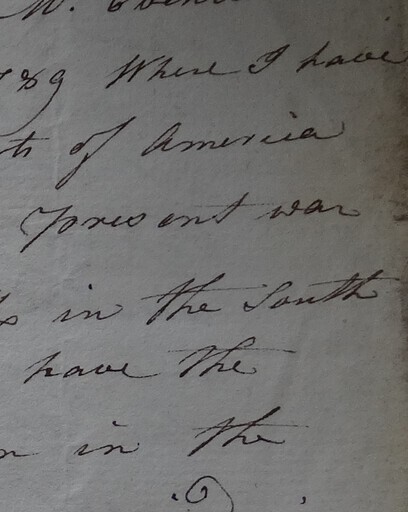 M.
Where I have
of America
present war
in the South
have the
in the